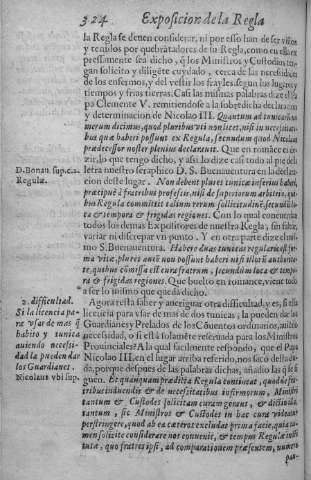 324 Exposicion de la Regla
la Regla se deuen considerar, ni por esso han de ser vistos
y tenidos por quebrãtadores de la Regla, como en ella ex
pressamente sea dicho, q̃ los Ministros y Custodios ten
gan solicito y diligẽte cuydado, cerca de las necesidades
de los enfermos, y del vestir los frayles, segun los lugares y
tiempos y frias tierras. Casi las mismas palabras dize el Pa
pa Clemente V. remitiendose a la sobredicha declaracion
y determinacion de Nicolao III. Quantum ad tunicarum
numerum dicimus, quod pluribus vti non licet, nisi in necessitati-
bus quæ haberi possunt ex Regula, secundum quod Nicolaus
prædecessor noster plenius declarauit. Que en romãce es de
zir, lo que tengo dicho, y assi lo dize casi todo al pie de la
D. Bonau. sup. c. 2.
Regulæ.
letra nuestro seraphico D. S. Buenauentura en la declara
cion deste lugar. Non debent plures tunicæ inferius haberi,
præcipuè à fratribus professis, nisi de superiorum arbitrio, qui-
bus Regula committit talium rerum sollicitudinẽ, secundũ lo-
ca & tempora & frigidas regiones. Con lo qual concuerdã
todos los demas Expositores de nuestra Regla, sin faltar,
variar ni discrepar vn punto. Y en otra parte dize el mis-
mo S. Buenauentura. Habere duas tunicas regulariter pri-
ma vice, plures autẽ non possunt haberi nisi illorũ authorita-
te, quibus cõmissa est cura fratrum, secundùm loca & tempo-
ra & frigidas regiones. Que buelto en romance, viene todo
a ser lo mismo que queda dicho.
2. difficultad.
Si la licencia pa
ra vsar de mas q̃
habito y tunica
auiendo necessi-
dad la pueden dar
los Guardianes.
Nicolaus vbi sup.
Agora resta saber y aueriguar otra difficultad, y es, si esta
licencia para vsar de mas de dos tunicas, la pueden dar los
Guardianes y Prelados de los Cõuentos ordinarios, auiẽdo
necessidad, o si està solamẽte reseruada para los Ministros
Prouinciales? A la qual facilmente respondo, que el Papa
Nicolao III. en el lugar arriba referido, nos sacò desta du-
da, porque despues de las palabras dichas, añadio las q̃ se si
guen. Et quamquam prædicta Regula contineat, quod de fra-
tribus induendis & de necessitatibus infirmorum, Ministri
tantum & Custodes sollicitam curam gerant, & dictio illa
tantum, sic Ministros & Custodes in hac cura videatur
perstringere, quod ab ea cæteros excludat prima facie, quia ta-
men solicite considerare nos conuenit, & tempus Regulæ insti
tutæ, quo fratres ipsi, ad comparationem præsentem, numero
pau-